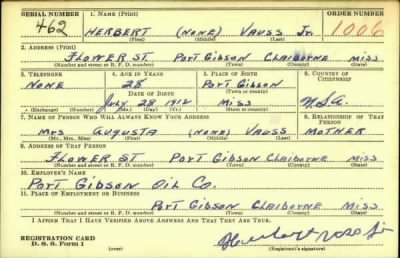 SERIAL NUMBER 1. NAME (Print) ORDER NUMBER
462 HERBERT (NONE) VAUSS Jr. 1006
(First) (Middle) (Last)
2. ADDRESS (Print)
FLOWER ST. PORT GIBSON CLAIBORNE MISS
(Number and street or R. F. D. number) (Town) (County) (State)
3. TELEPHONE 4. AGE IN YEARS 5. PLACE OF BIRTH 6. COUNTRY OF CITIZENSHIP
NONE 28 PORT GIBSON
DATE OF BIRTH (Town or county)
July 28 1912 MISS U.S.A.
(Exchange) (Number) (Mo.) (Day) (Yr.) (State or country)
7. NAME OF PERSON WHO WILL ALWAYS KNOW YOUR ADDRESS 8. RELATIONSHIP OF THAT PERSON
MRS. AUGUSTA (NONE) VAUSS MOTHER
(Mr., Mrs., Miss) (First) (Middle) (Last)
9. ADDRESS OF THAT PERSON
FLOWER ST PORT GIBSON CLAIBORNE MISS
(Number and street or R. F. D. number) (Town) (County) (State)
10. EMPLOYER'S NAME
PORT GIBSON OIL CO.
11. PLACE OF EMPLOYMENT OR BUSINESS
PORT GIBSON CLAIBORNE MISS
(Number and street or R. F. D. number) (Town) (County) (State)
I AFFIRM THAT I HAVE VERIFIED ABOVE ANSWERS AND THAT THEY ARE TRUE.
REGISTRATION CARD
D. S. S. Form 1 (over) (Registrant's signature)